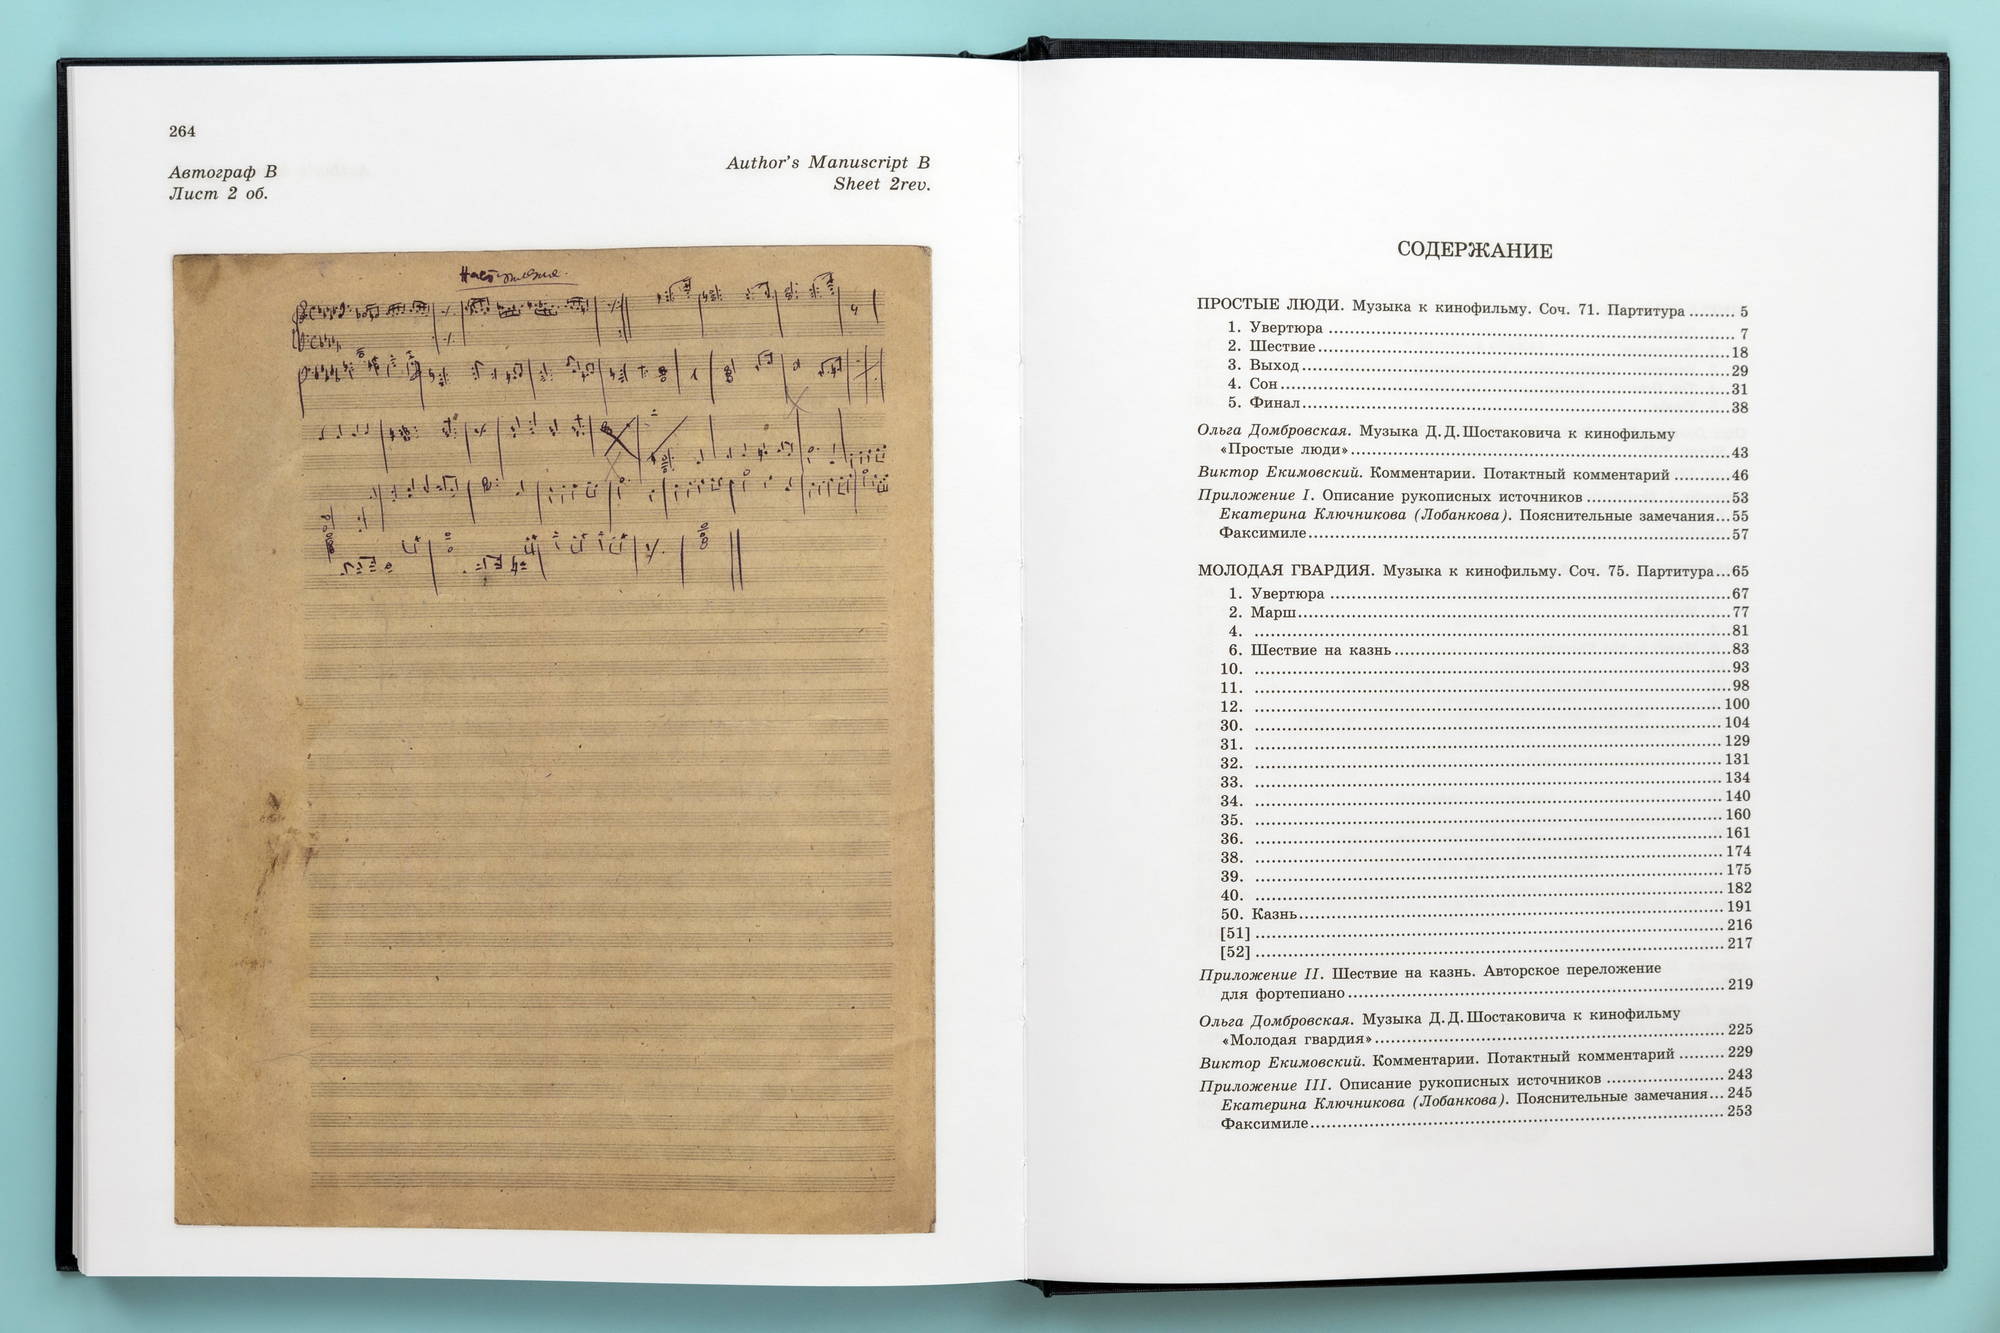 264
Автограф В
Лист 2 об.
Author's Manuscript B
Sheet 2rev.
СОДЕРЖАНИЕ
ПРОСТЫЕ ЛЮДИ. Музыка к кинофильму. Соч. 71. Партитура ......... 5
1. Увертюра ........ 7
2. Шествие ........ 18
3. Выход ........ 29
4. Сон ........ 31
5. Финал ........ 38
Ольга Домбровская. Музыка Д. Д. Шостаковича к кинофильму
«Простые люди» ........ 43
Виктор Екимовский. Комментарии. Потактный комментарий ........ 46
Приложение I. Описание рукописных источников ........ 53
Екатерина Ключникова (Лобанкова). Пояснительные замечания... 55
Факсимиле ........ 57
МОЛОДАЯ ГВАРДИЯ. Музыка к кинофильму. Соч. 75. Партитура... 65
1. Увертюра ........ 67
2. Марш ........ 77
4. ........ 81
6. Шествие на казнь ........ 83
10. ........ 93
11. ........ 98
12. ........ 100
30. ........ 104
31. ........ 129
32. ........ 131
33. ........ 134
34. ........ 140
35. ........ 160
36. ........ 161
38. ........ 174
39. ........ 175
40. ........ 182
50. Казнь ........ 191
[51] ........ 216
[52] ........ 217
Приложение II. Шествие на казнь. Авторское переложение
для фортепиано ........ 219
Ольга Домбровская. Музыка Д. Д. Шостаковича к кинофильму
«Молодая гвардия» ........ 225
Виктор Екимовский. Комментарии. Потактный комментарий ........ 229
Приложение III. Описание рукописных источников ........ 243
Екатерина Ключникова (Лобанкова). Пояснительные замечания... 245
Факсимиле ........ 253